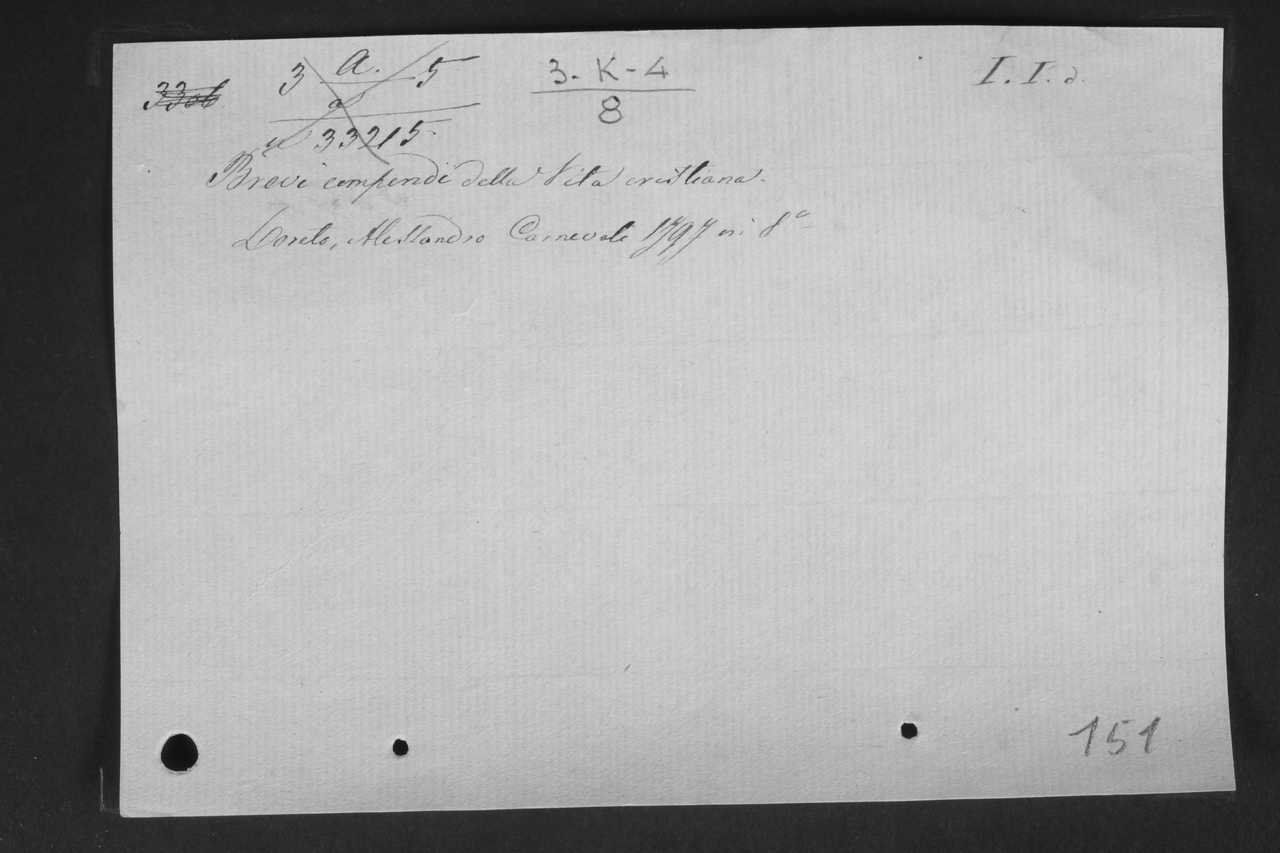 3 a. 5
3. K-4
8
I. I. d.
33215
Brevi compendi della Vita cristiana.
Loreto, Alessandro Carnevali 1797 in 8°
151